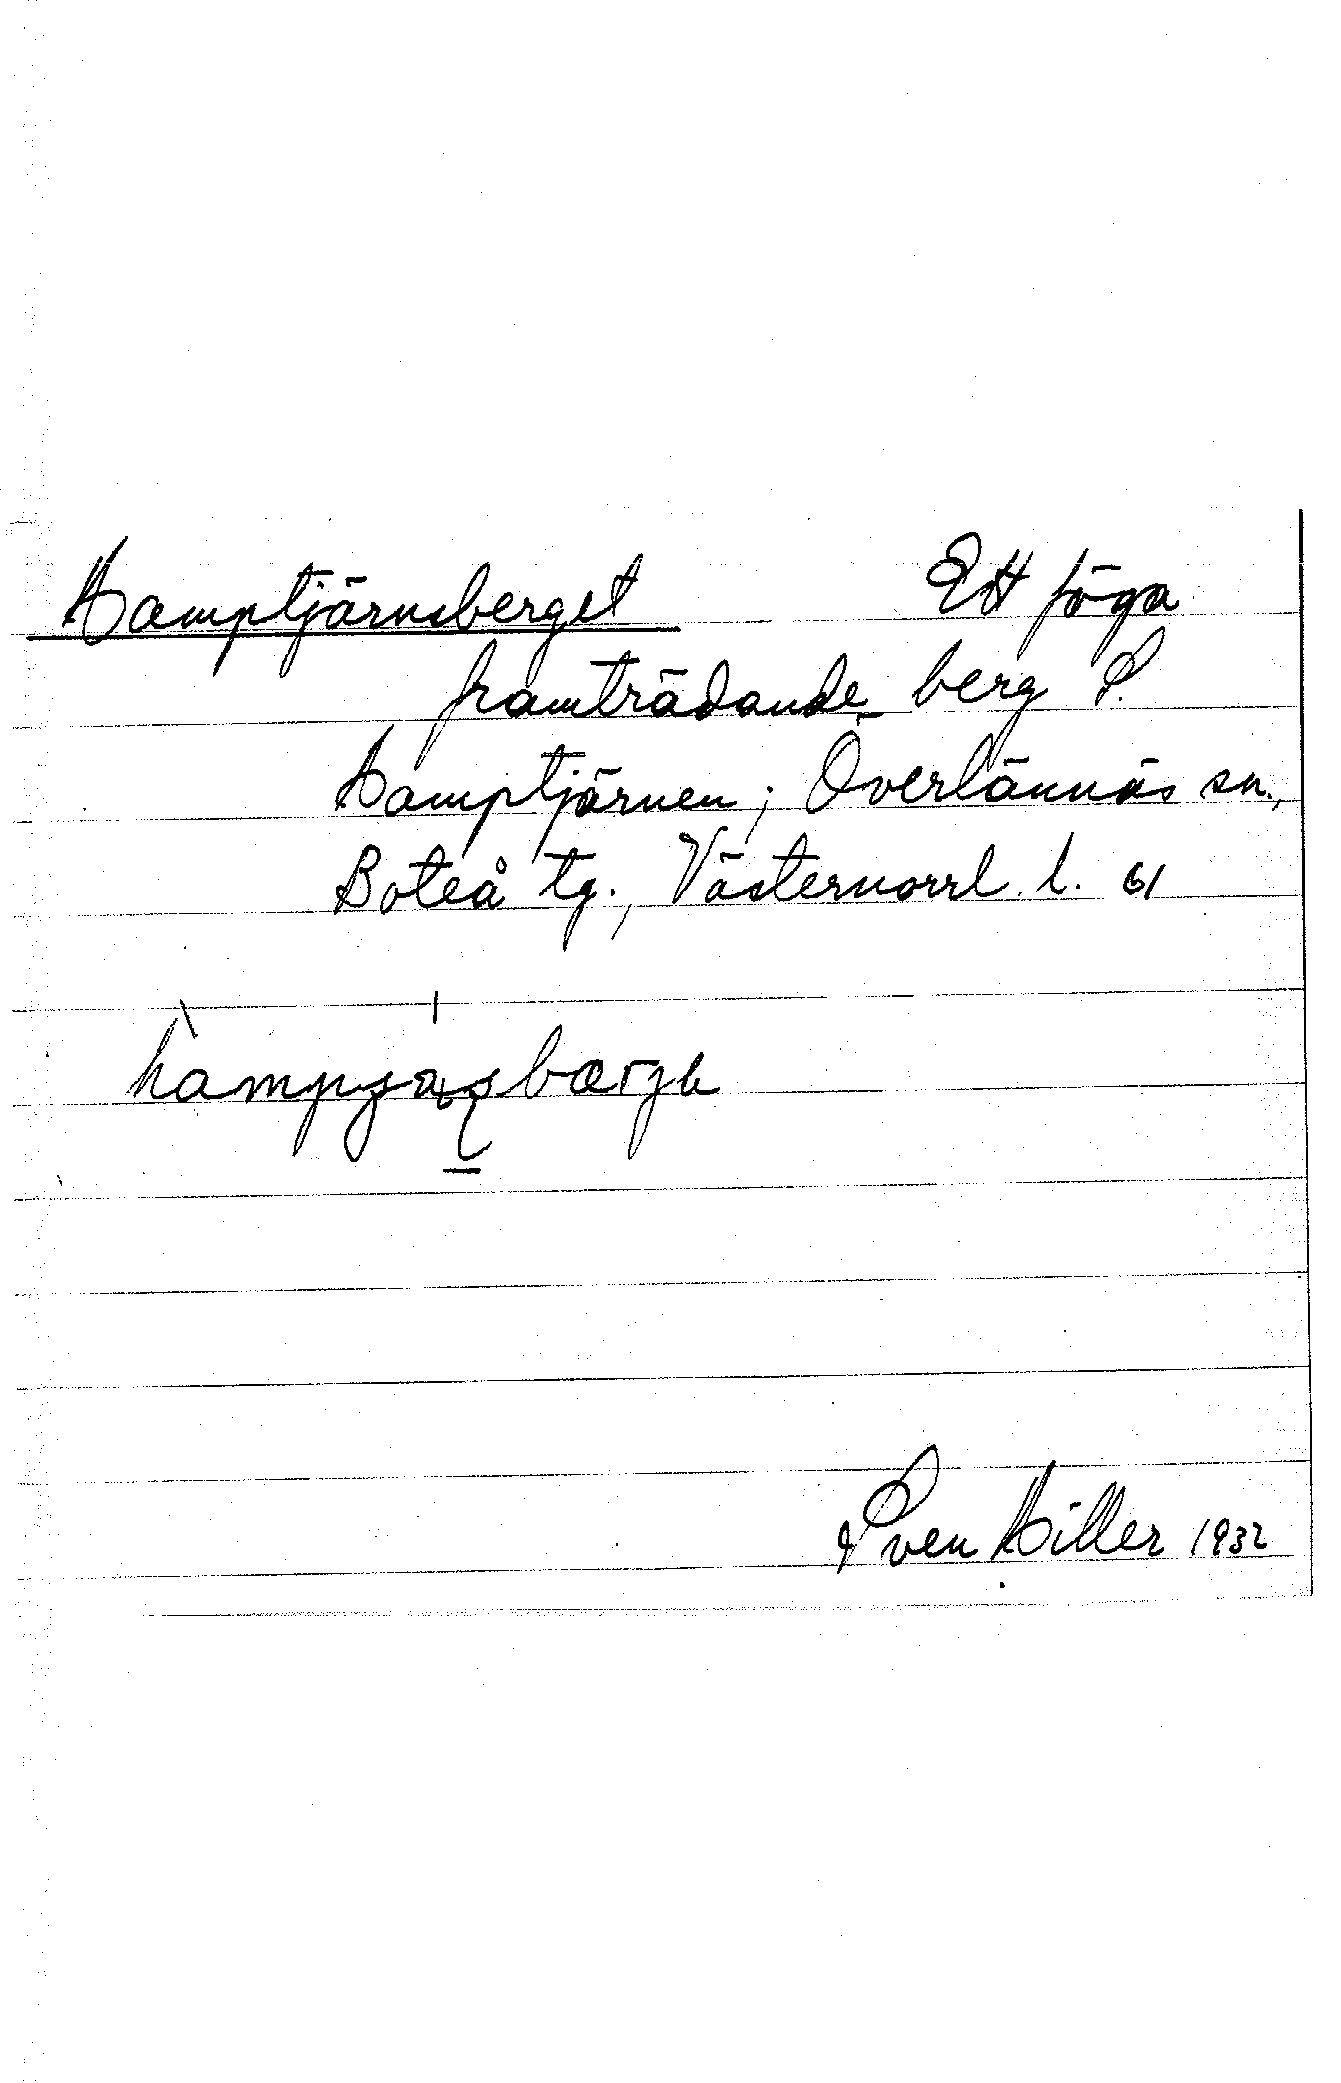 Hamptjärnsberget Ett föga
framträdande berg S.
Hamptjärnen; Överlännäs sn.,
Boteå tg., Västernorrl. l. 61
Sven Hiller 1932